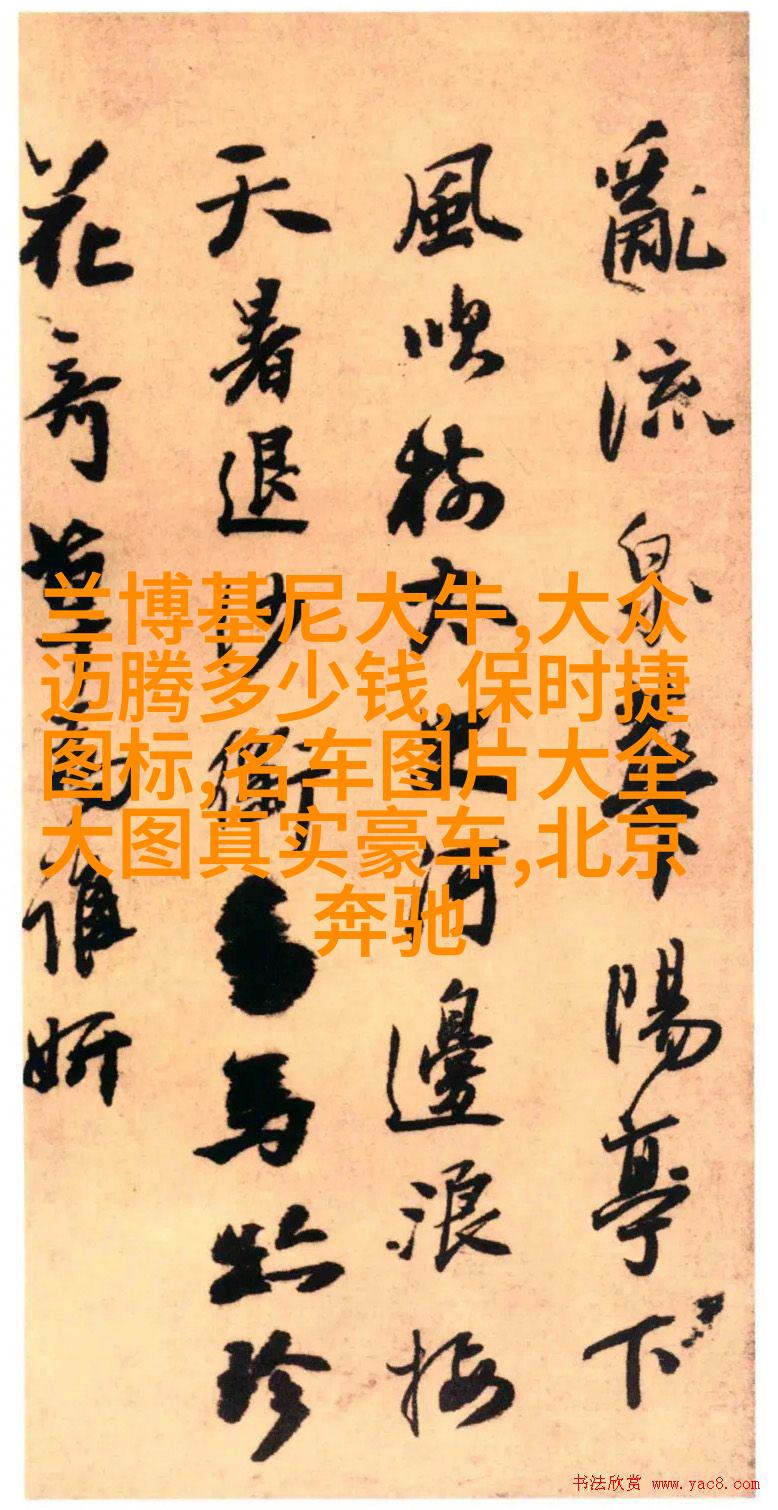 亂流泉華陽亭下
風吹樹河邊浪接
天暑退馬珍
花奇誰妍
兰博基尼大牛,大众
迈腾多少钱,保时捷
图标,名车图片大全
大图真实豪车,北京
奔驰
书法欣赏 www.yac8.com